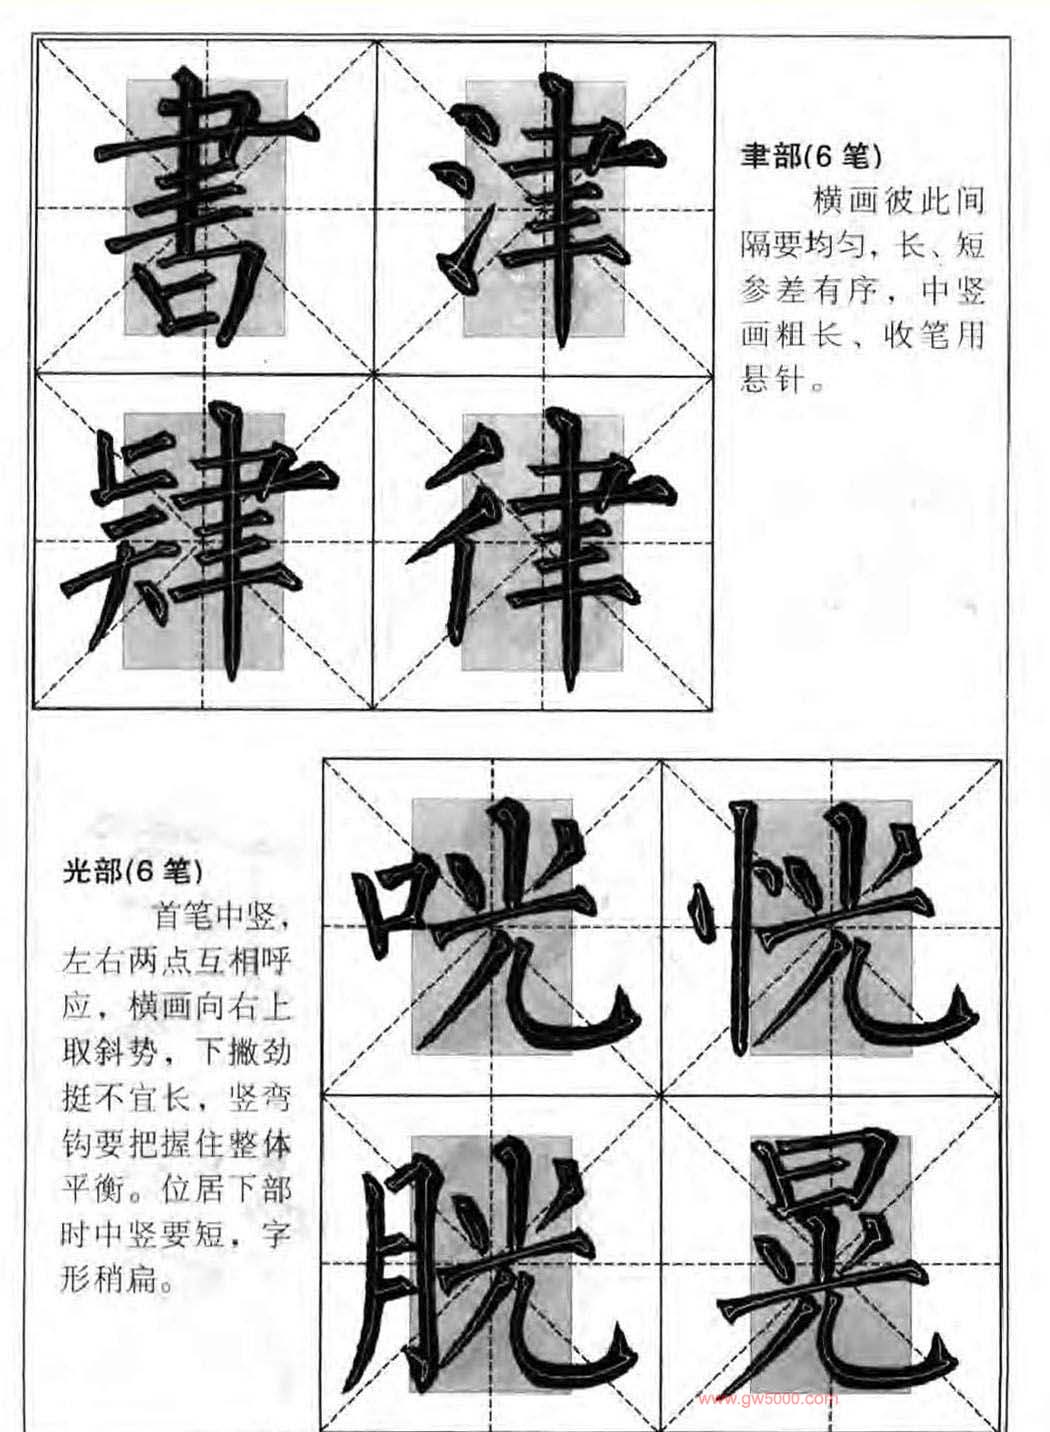 書 津
肄 律
聿部(6笔)
横画彼此间
隔要均匀，长、短
参差有序，中竖
画粗长、收笔用
悬针。
光部(6笔)
首笔中竖，
左右两点互相呼
应，横画向右上
取斜势，下撇劲
挺不宜长，竖弯
钩要把握住整体
平衡。位居下部
时中竖要短，字
形稍扁。
咣 恍
胱 晃
www.gw5000.com